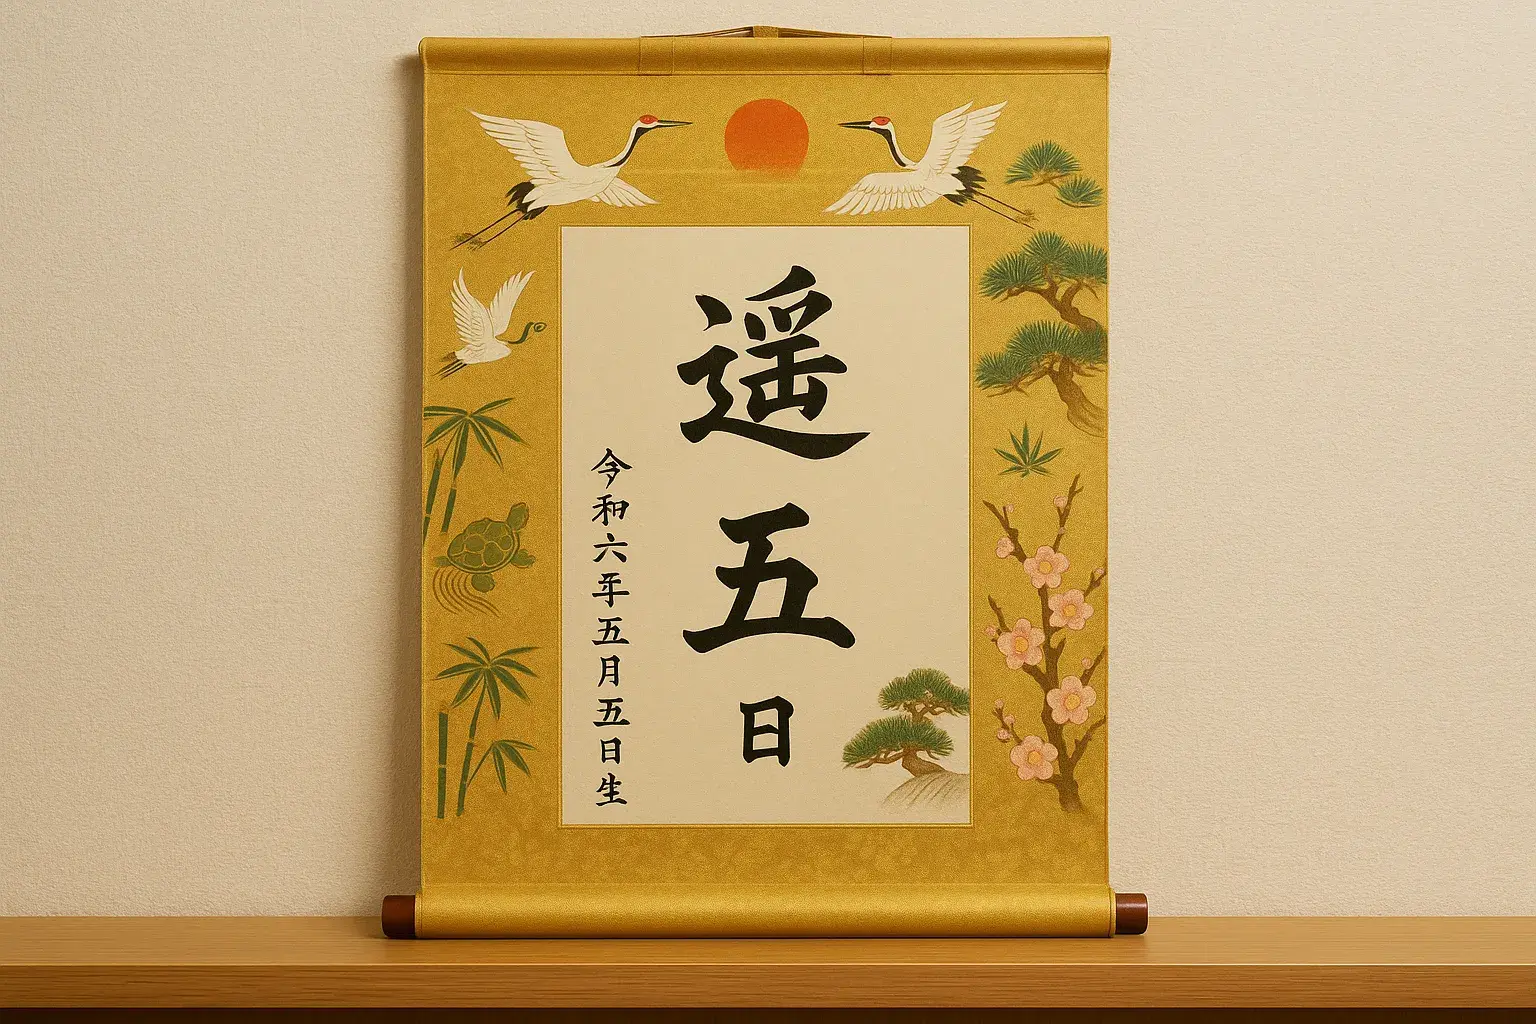 遥五日
令和六年五月五日生